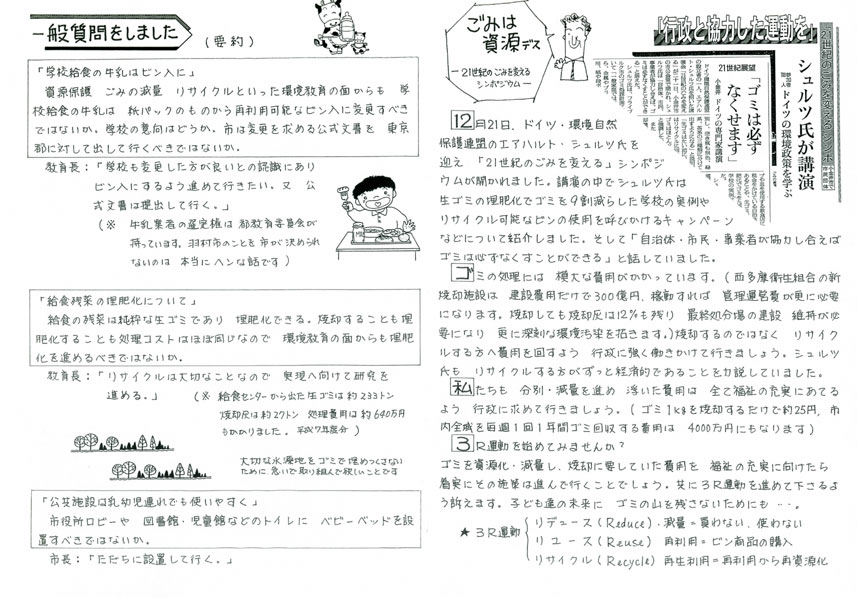 一般質問をしました
(要約)
「学校給食の牛乳はビン入に」
資源保護 ごみの減量 リサイクルといった環境教育の面からも 学
校給食の牛乳は 紙パックのものから再利用可能なビン入に変更すべき
ではないか。学校の意向はどうか。市は変更を求める公式文書を 東京
都に対して出して行くべきではないか。
教育長:「学校も変更した方が良いとの認識にあり
ビン入にするよう進めて行きたい。又 公
式文書は提出して行く。」
(※ 牛乳業者の選定権は都教育委員会が
持っています。羽村市のことを市が決められ
ないのは 本当にヘンな話です)
「給食残菜の堆肥化について」
給食の残菜は純粋な生ゴミであり 堆肥化できる。焼却することも堆
肥化することも処理コストはほぼ同じなので 環境教育の面からも堆肥
化を進めるべきではないか。
教育長:「リサイクルは大切なことなので 実現へ向けて研究を
進める。」 (※ 給食センターから出た生ゴミは約233トン
焼却灰は約27トン 処理費用は約640万円
もかかりました。平成7年度分)
大切な水源地をゴミで埋めつくさない
ために急いで取り組んで欲しいことです
「公共施設は乳幼児連れでも使いやすく」
市役所ロビーや 図書館・児童館などのトイレに ベビーベッドを設
置すべきではないか。
市長:「ただちに設置して行く。」
ごみは
資源デス
―21世紀のごみを変える
シンポジウム―
「行政と協力した運動を」
21世紀のごみを変えるシンポ
シュルツ氏が講演
ドイツの環境政策を学ぶ
21世紀展望
「ゴミは必ず
なくせます」
ドイツの専門家講演
12月21日、ドイツ・環境自然
保護連盟のエアハルト・シュルツ氏を
迎え 「21世紀のごみを変える」シンポジ
ウムが開かれました。講演の中でシュルツ氏は
生ゴミの堆肥化でゴミを9割減らした学校の実例や
リサイクル可能なビンの使用を呼びかけるキャンペーン
などについて紹介しました。そして「自治体・市民・事業者が協力し合えば
ゴミは必ずなくすことができる」と話していました。
ゴミの処理には 莫大な費用がかかっています。(西多摩衛生組合の新
焼却施設は 建設費用だけで300億円、稼動すれば 管理運営費が更に必要
になります。焼却しても焼却灰は12%も残り 最終処分場の建設 維持が必
要になり 更に深刻な環境汚染を招きます。)焼却するのではなく リサイク
ルする方へ費用を回すよう 行政に強く働きかけて行きましょう。シュルツ
氏も リサイクルする方がずっと経済的であることを力説していました。
私たちも 分別・減量を進め 浮いた費用は 全て福祉の充実にあてる
よう 行政に求めて行きましょう。(ゴミ1kgを焼却するだけで約25円、市
内全域を毎週1回1年間ゴミ回収する費用は 4000万円にもなります)
3R運動を始めてみませんか?
ゴミを資源化・減量し、焼却に要していた費用を 福祉の充実に向けたら
着実にその施策は進んで行くことでしょう。共に3R運動を進めて下さるよ
う訴えます。子ども達の未来に ゴミの山を残さないためにも …。
★ 3R運動
リデュース(Reduce)・減量=買わない、使わない
リユース(Reuse) 再利用=ビン商品の購入
リサイクル(Recycle)再生利用=再利用から再資源化